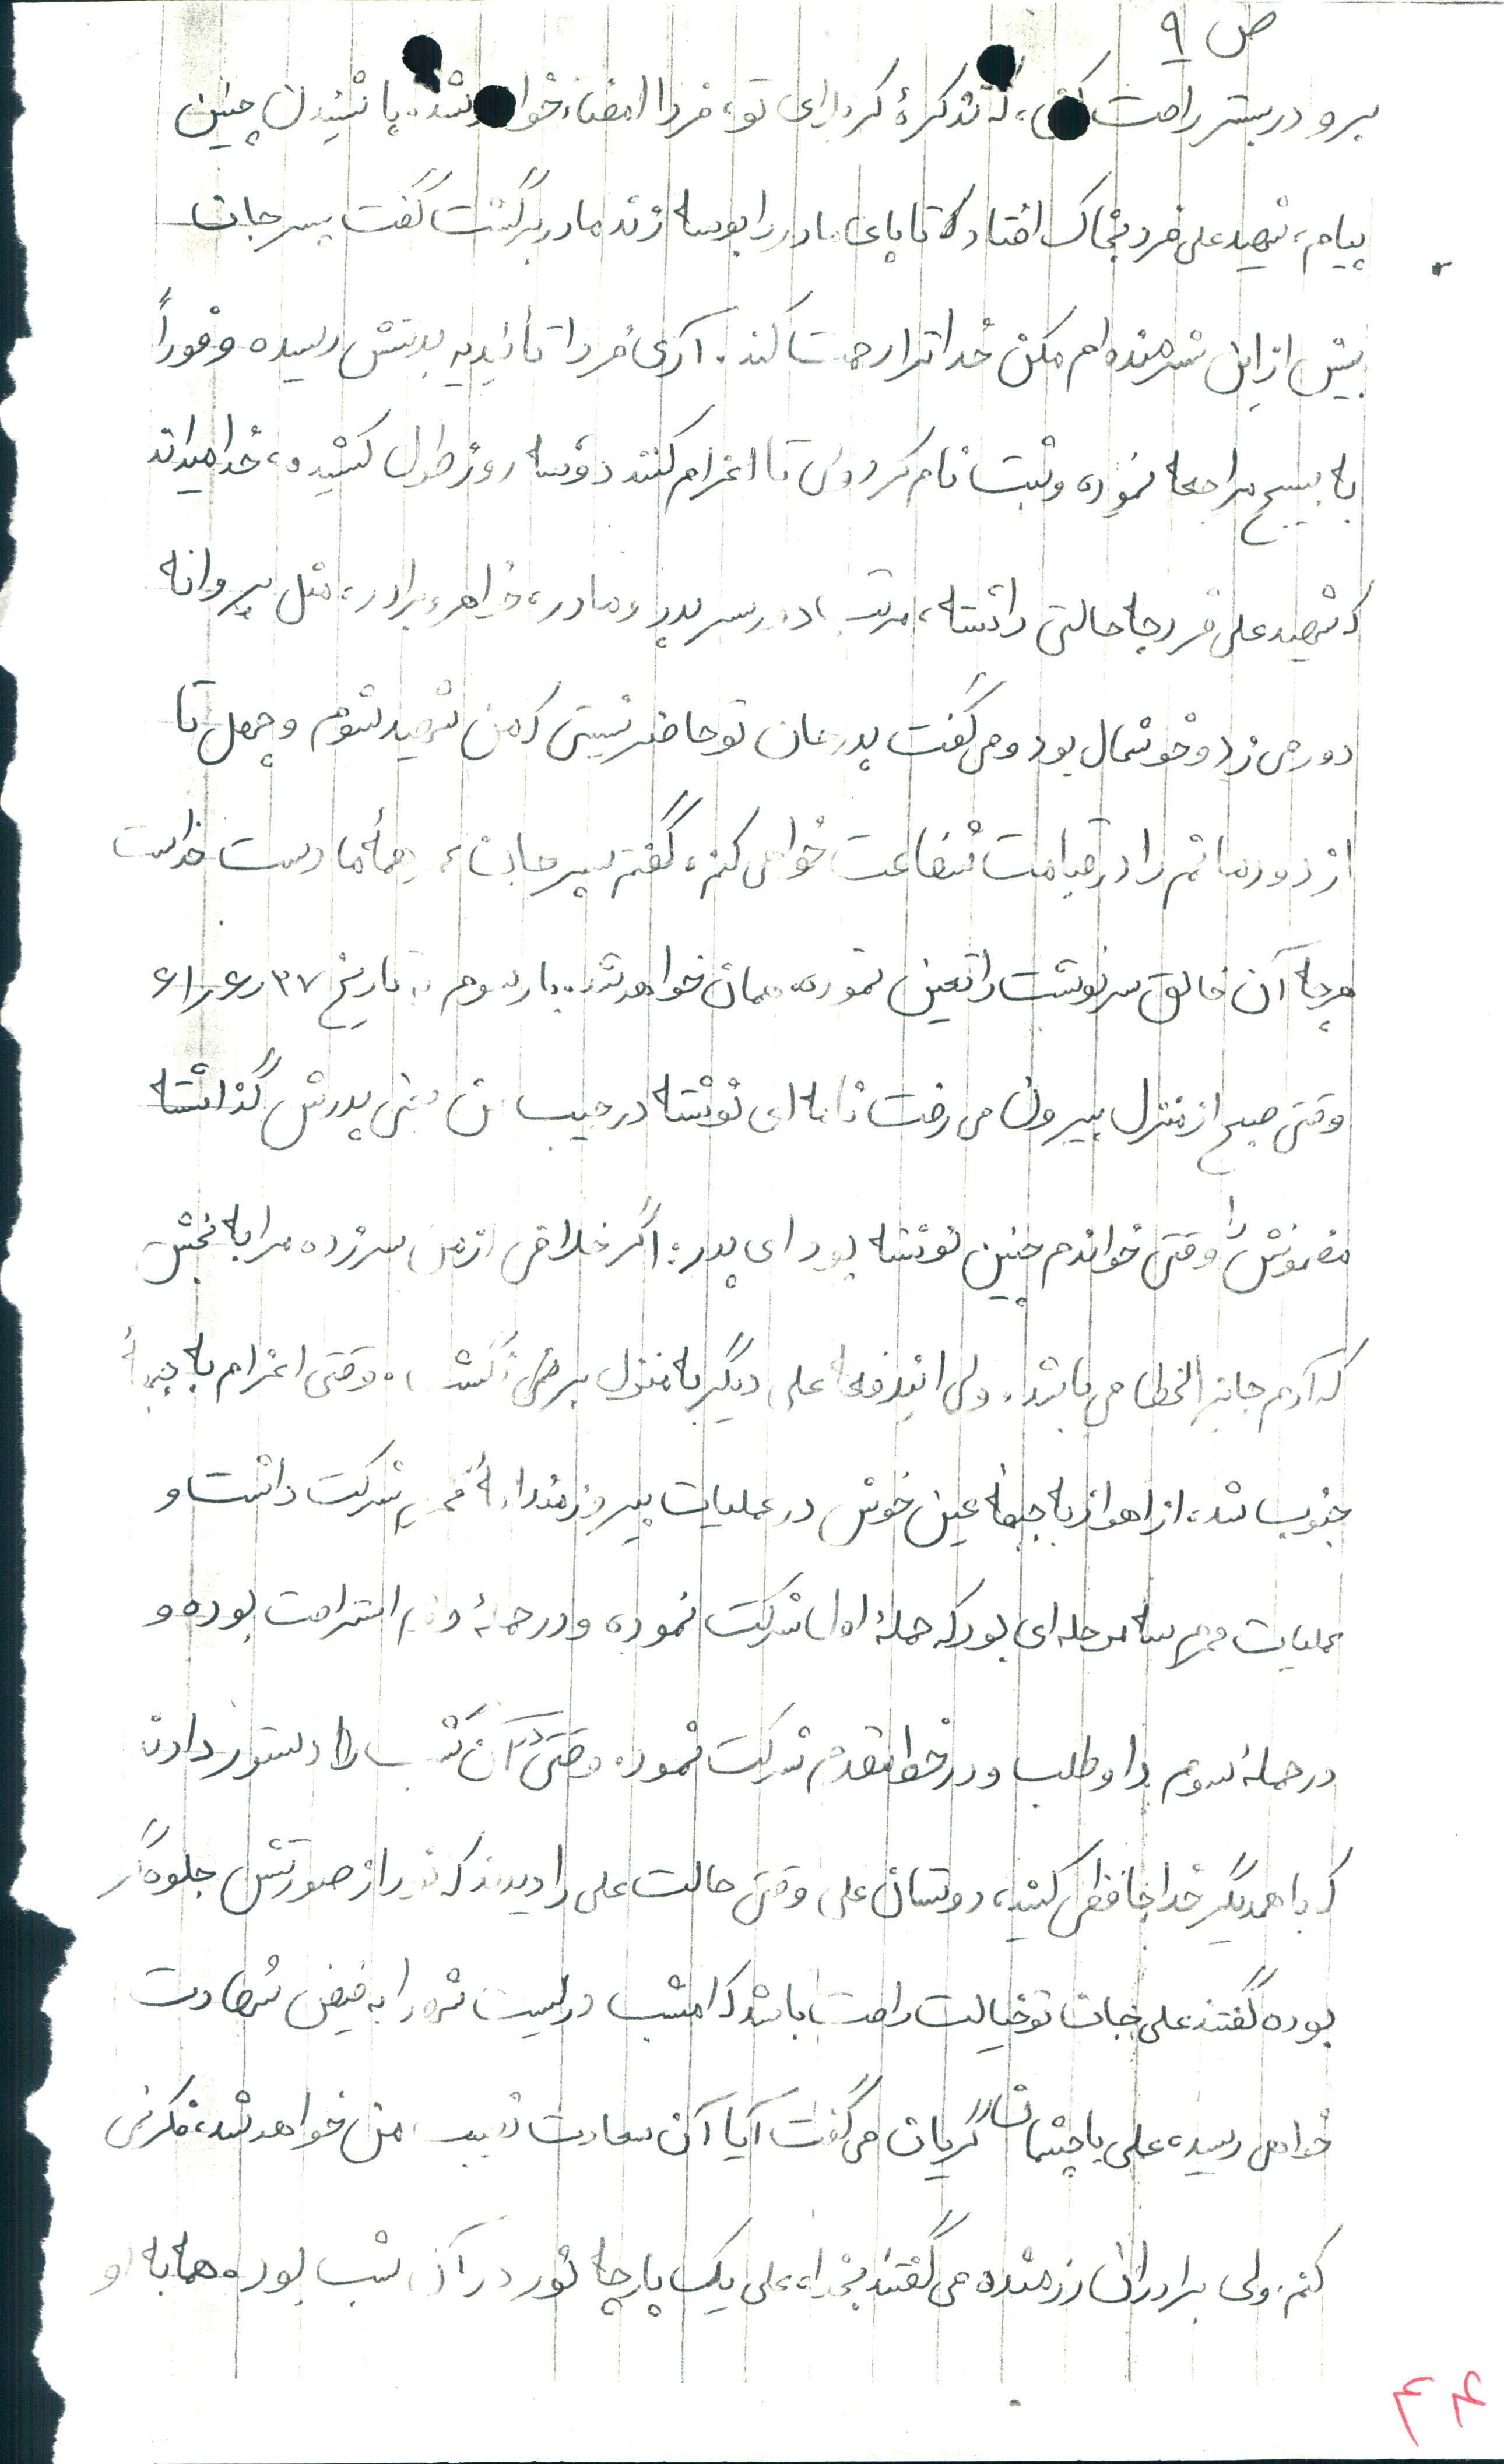 ص ۹
برو در بستر راحت کن، که تذکرهٔ کربلای تو، فردا امضاء خواهد شد. با شنیدن چنین
پیام، شهید علی فرد بخاک افتاد که تا پای مادر را بوسه زند مادر برگشت گفت پسر جان
بیش از این شرمنده ام مکن خدا ترا رحمت کند. آری فردا تائیدیه بدستش رسیده و فوراً
به بسیج مراجعه نموده و ثبت نام کرد ولی تا اعزام کنند دو سه روز طول کشیده، خدا میداند
که شهید علی فرد چه حالتی داشته، مرتب دور سر پدر و مادر، خواهر، برادر، مثل پروانه
دور می زد و خوشحال بود و می گفت پدر جان تو حاضر نیستی که من شهید شوم و چهل تا
از دودمانم را در قیامت شفاعت خواهی کنم، گفتم پسر جان، همهٔ ما دست خداست
هر چه آن خالق سرنوشت را تعین نموده همان خواهد شد. بار سوم به تاریخ ۳۷ ر۶ ر۶۱
وقتی صبح از منزل بیرون می رفت نامه ای نوشته در جیب من یعنی پدرش گذاشته
مضمونش را وقتی خواندم چنین نوشته بود ای پدر: اگر خلافی از من سر زده مرا به بخش
که آدم جایز الخطا می باشد. ولی ایندفعه علی دیگر به منزل بر نگشت. وقتی اعزام به جبههٔ
جنوب شد، از اهواز به جبههٔ عین خوش در عملیات پیروزمندانهٔ محرم شرکت داشت و
عملیات محرم سه مرحله ای بود که حملهٔ اول شرکت نموده و در حملهٔ دوم استراحت بوده و
در حملهٔ سوم داوطلب و در خط مقدم شرکت نموده وقتی در آن شب ما را دستور دادند
که با همدیگر خدا حافظی کنید، دوستان علی وقتی حالت علی را دیدند که نور از صورتش جلوه گر
بوده گفتند علی جان تو خیالت راحت باشد که امشب در لیست شهدا به فیض شهادت
خواهی رسید، علی با چشمان گریان می گفت آیا آن سعادت نصیب من خواهد شد، فکر نمی
کنم. ولی برادران رزمنده می گفتند بخدا، علی یک پارچه نور در آن شب بود. همه به او
۴۴